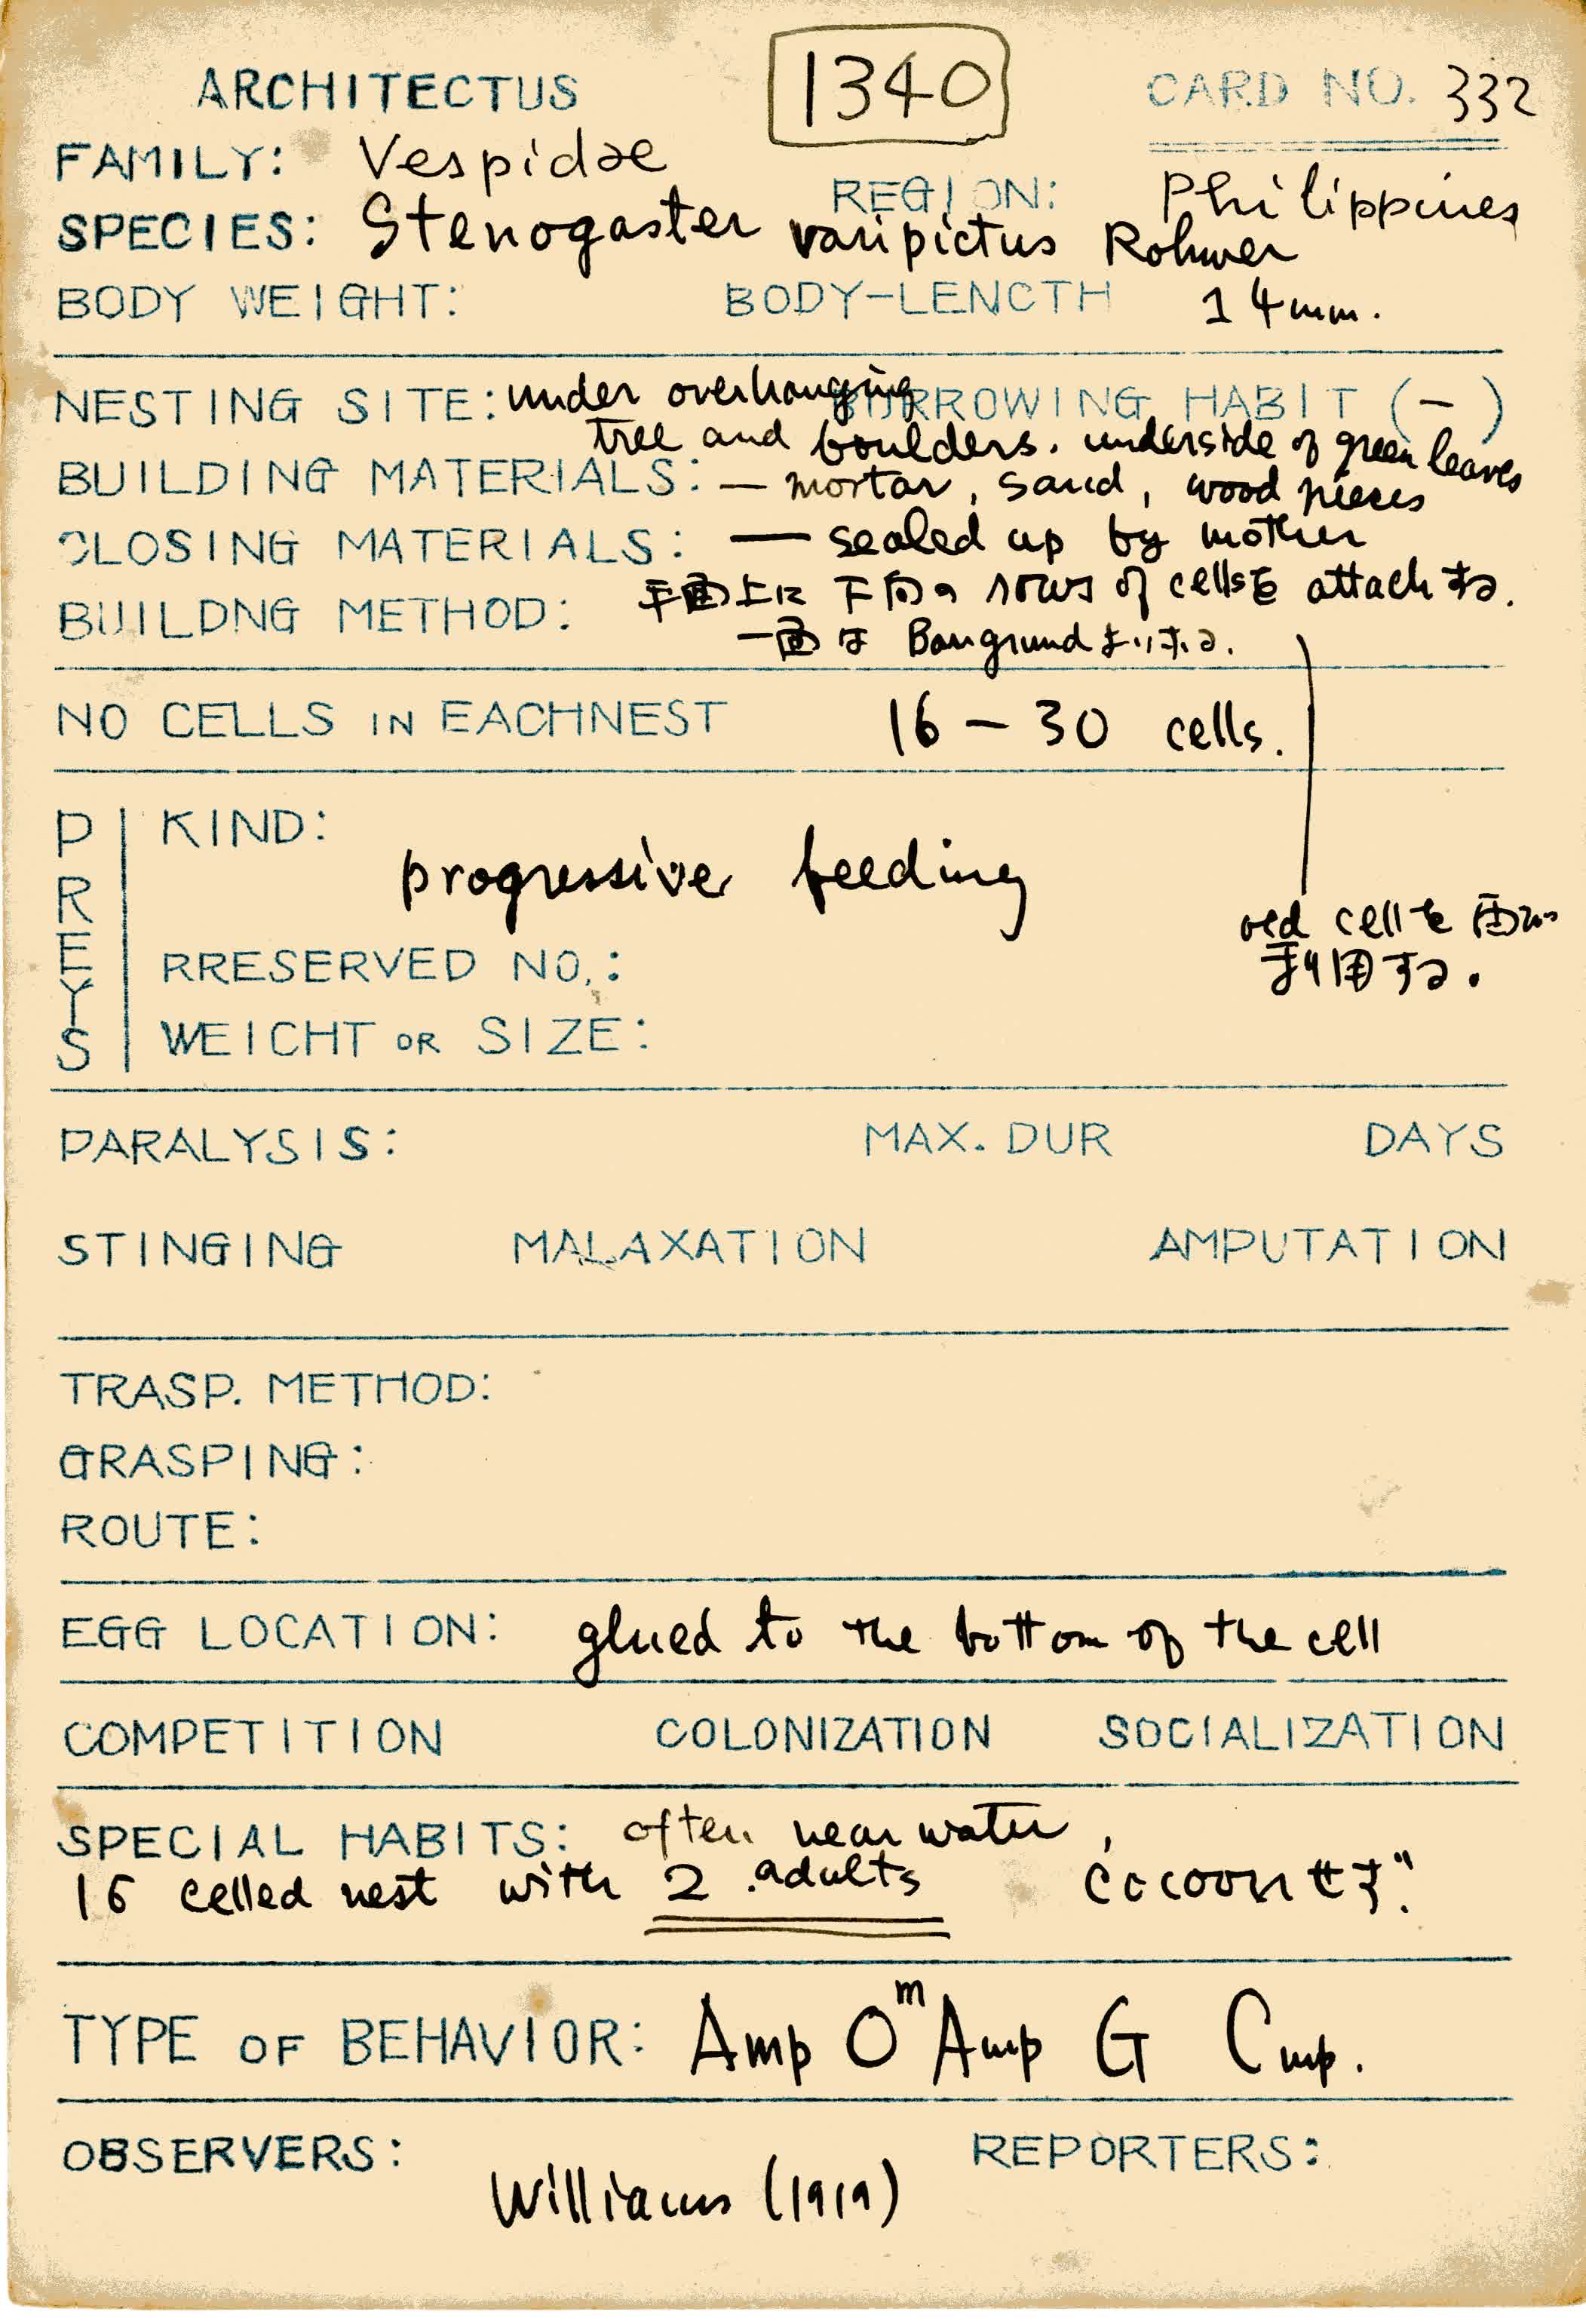 1340
ARCHITECTUS CARD NO. 332
FAMILY: Vespidae
REGION: Philippines
SPECIES: Stenogaster varipictus Rohwer
BODY WEIGHT: BODY-LENCTH 14mm.
NESTING SITE: under overhanging BURROWING HABIT (-)
tree and boulders. underside of green leaves
BUILDING MATERIALS: — mortar, sand, wood pieces
CLOSING MATERIALS: — sealed up by mother
平面上に下向の rows of cellsを attachする.
BUILDNG METHOD:
一面は
NO CELLS IN EACHNEST 16 - 30 cells.
PREYS
KIND:
progressive feeding
old cellを
利用する.
RRESERVED NO.:
WEICHT OR SIZE:
PARALYSIS: MAX. DUR DAYS
STINGING MALAXATION AMPUTATION
TRASP. METHOD:
GRASPING:
ROUTE:
EGG LOCATION: glued to the bottom of the cell
COMPETITION COLONIZATION SOCIALIZATION
SPECIAL HABITS: often near water,
16 celled nest with 2 adults cocoonせず.
TYPE OF BEHAVIOR: Amp O^m Amp G Cmp.
OBSERVERS: REPORTERS:
Williams (1919)